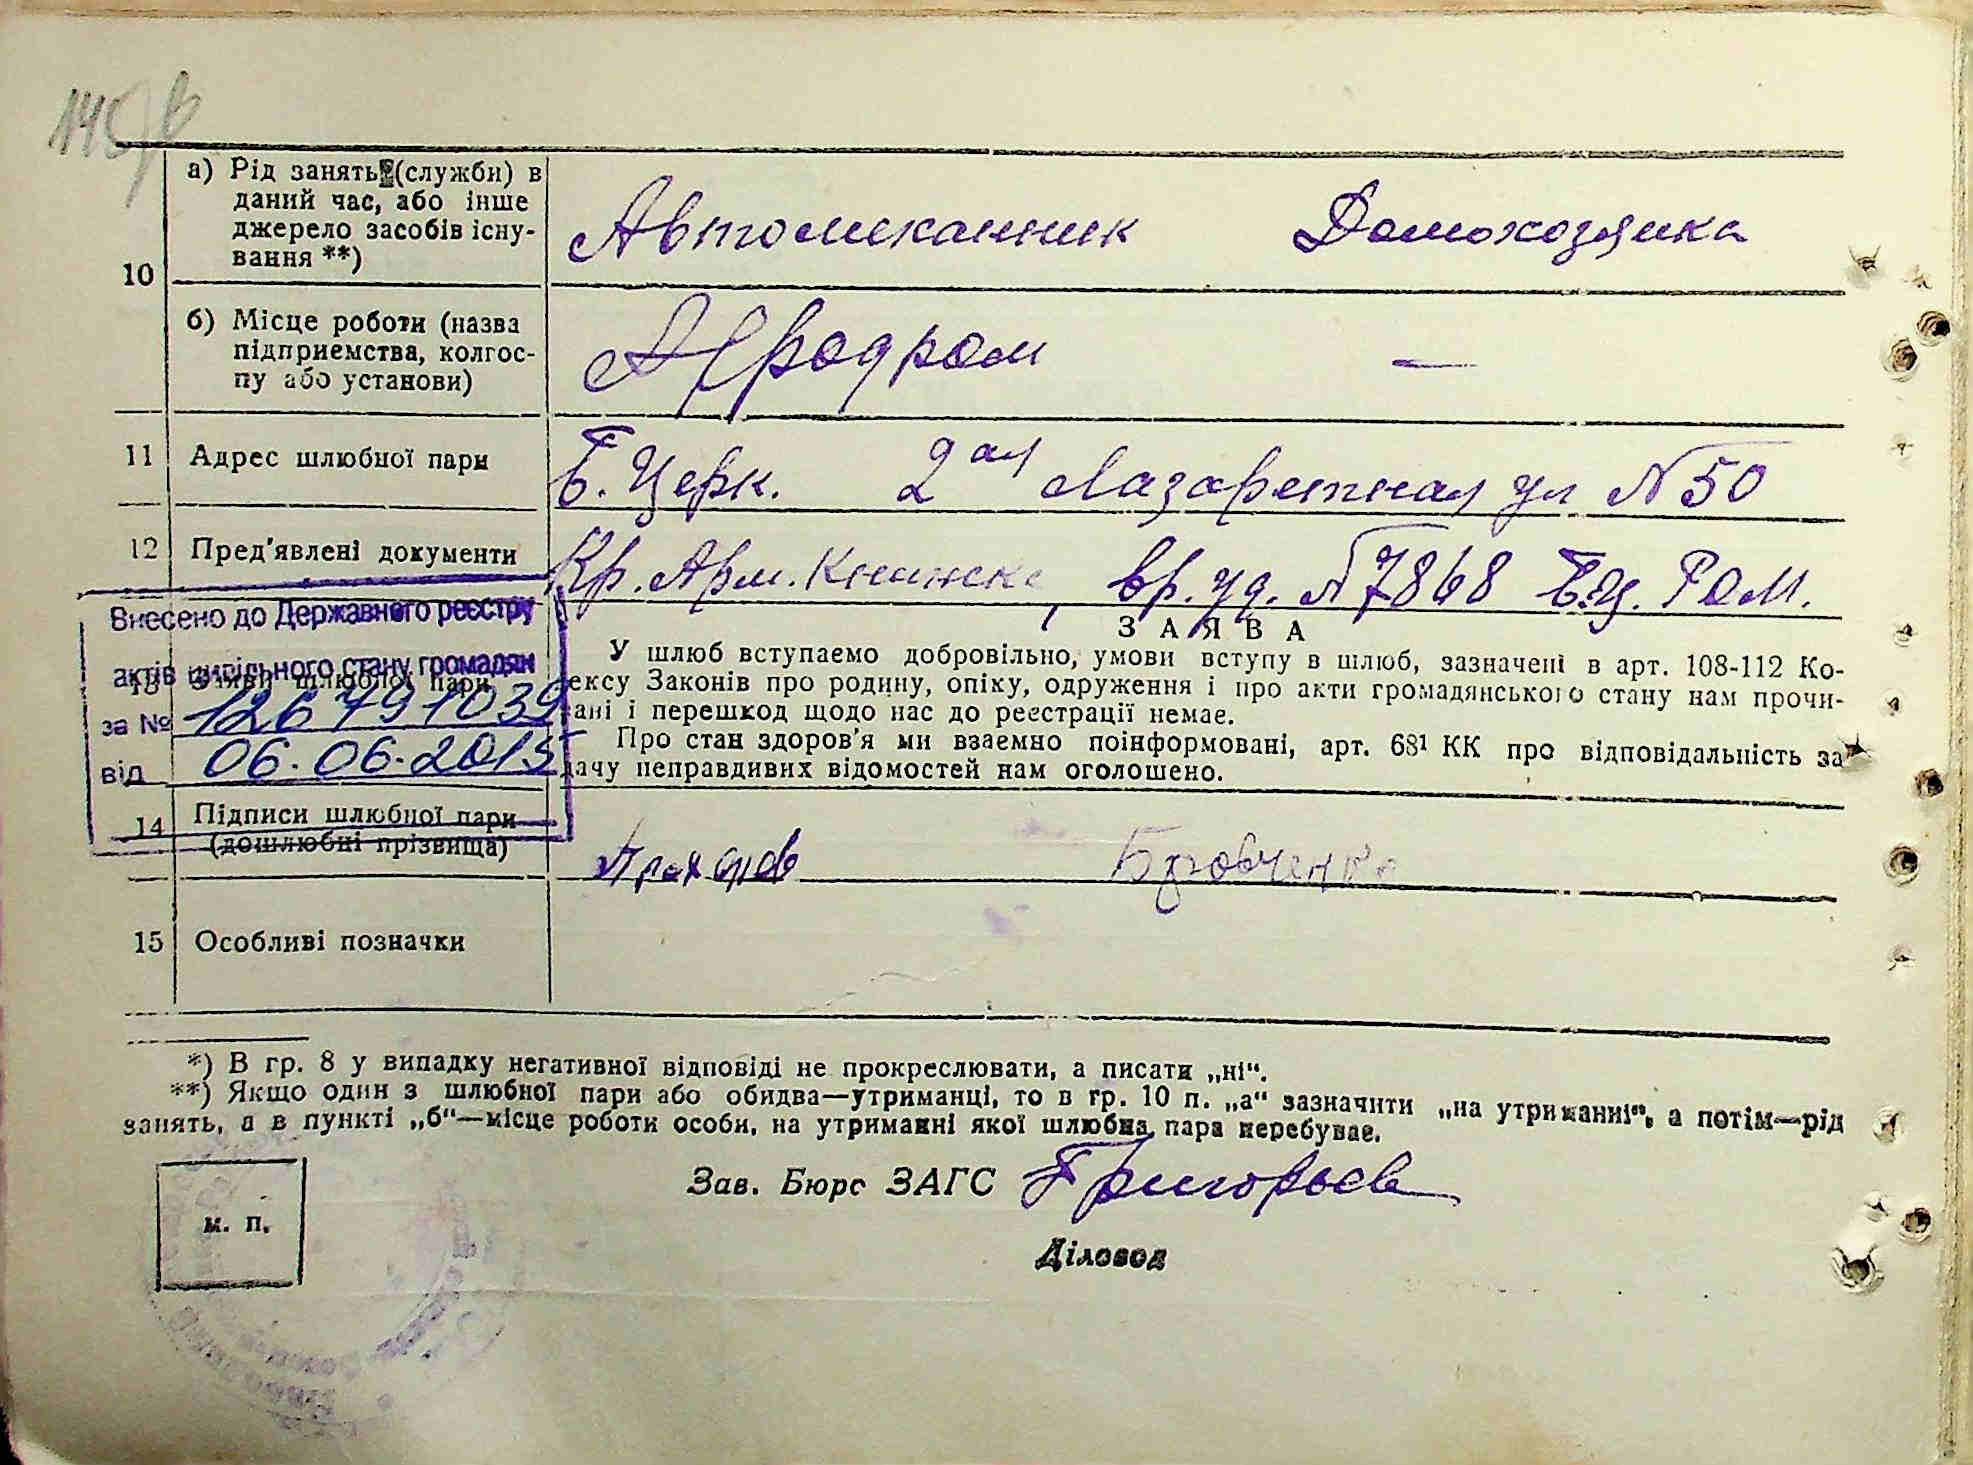 а) Рід занять (служби) в
даний час, або інше
джерело засобів існу-
вання **)
Автомиханник Домохозяика
10
б) Місце роботи (назва
підприємства, колгос-
пу або установи)
Аеродром —
11 Адрес шлюбної пари
Б. Церк. 2ая Лазаретная ул N 50
12 Пред'явлені документи
Кр. Арм. Книжка, вр. уд. N 7868 Б.Ц. РОМ.
Внесено до Державного реєстру
актів цивільного стану громадян
за №
від 06.06.2013
13 Заяви шлюбної пари
ЗАЯВА
У шлюб вступаємо добровільно, умови вступу в шлюб, зазначені в арт. 108-112 Ко-
ексу Законів про родину, опіку, одруження і про акти громадянського стану нам прочи-
ані і перешкод щодо нас до реєстрації немає.
Про стан здоров'я ми взаємно поінформовані, арт. 68¹ КК про відповідальність за
дачу неправдивих відомостей нам оголошено.
14 Підписи шлюбної пари
(дошлюбні прізвища)
15 Особливі позначки
*) В гр. 8 у випадку негативної відповіді не прокреслювати, а писати „ні“.
**) Якщо один з шлюбної пари або обидва—утриманці, то в гр. 10 п. „а“ зазначити „на утриманні“, а потім—рід
занять, а в пункті „б“—місце роботи особи, на утриманні якої шлюбна пара перебуває.
Зав. Бюро ЗАГС Григорьев
м. п.
Діловод